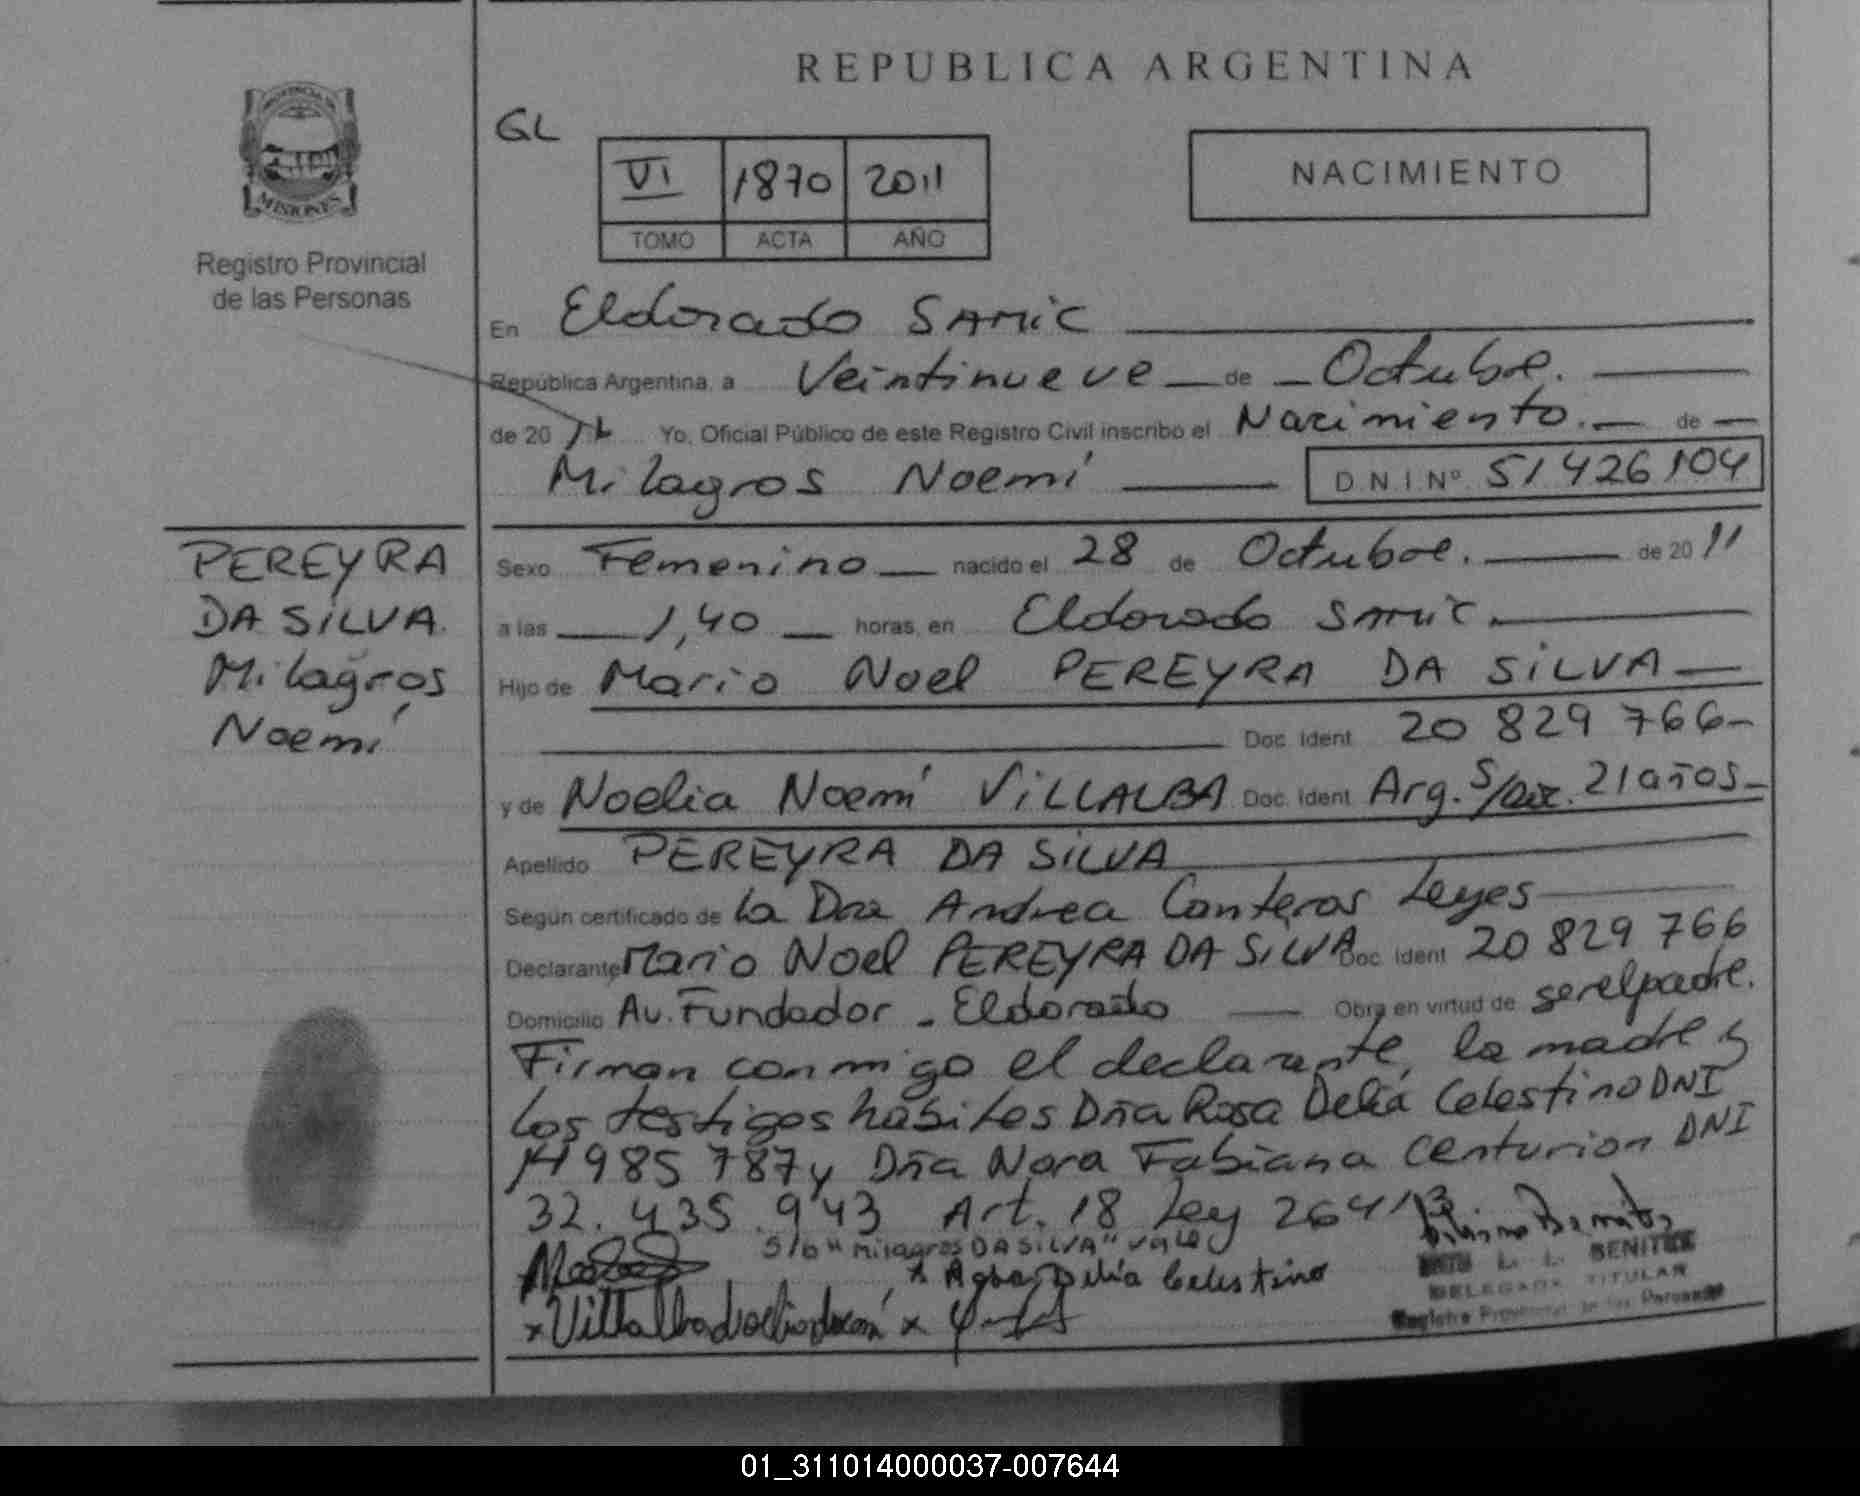 REPUBLICA ARGENTINA
GL
VI 1870 2011
TOMO ACTA AÑO
NACIMIENTO
MISIONES
Registro Provincial
de las Personas
En Eldorado SAMIC
República Argentina, a Veintinueve de Octubre.
de 20 11 Yo, Oficial Público de este Registro Civil inscribo el Nacimiento. de
Milagros Noemí D.N.I Nº 51 426 104
PEREYRA
DA SILVA.
Milagros
Noemí
Sexo Femenino nacido el 28 de Octubre. de 20 11
a las 1,40 horas, en Eldorado SAMIC.
Hijo de Mario Noel PEREYRA DA SILVA
Doc. Ident 20 829 766-
y de Noelia Noemí VILLALBA Doc. Ident Arg. 21 años-
Apellido PEREYRA DA SILVA
Según certificado de la Dra Andrea Conteras Leyes
Declarante Mario Noel PEREYRA DA SILVA Doc. Ident 20 829 766
Domicilio Av. Fundador - Eldorado Obra en virtud de ser el padre.
Firman conmigo el declarante, la madre y
los testigos hábiles Dña Rosa Delia Celestino DNI
14 985 787 y Dña Nora Fabiana Centurion DNI
32.435.943 Art. 18 Ley 26413
S/b "Milagros DA SILVA" vale
Delia Celestino
x Villalba Noelia Noemí x
BENITEZ
DELEGADA TITULAR
Registro Provincial de las Personas
01_311014000037-007644